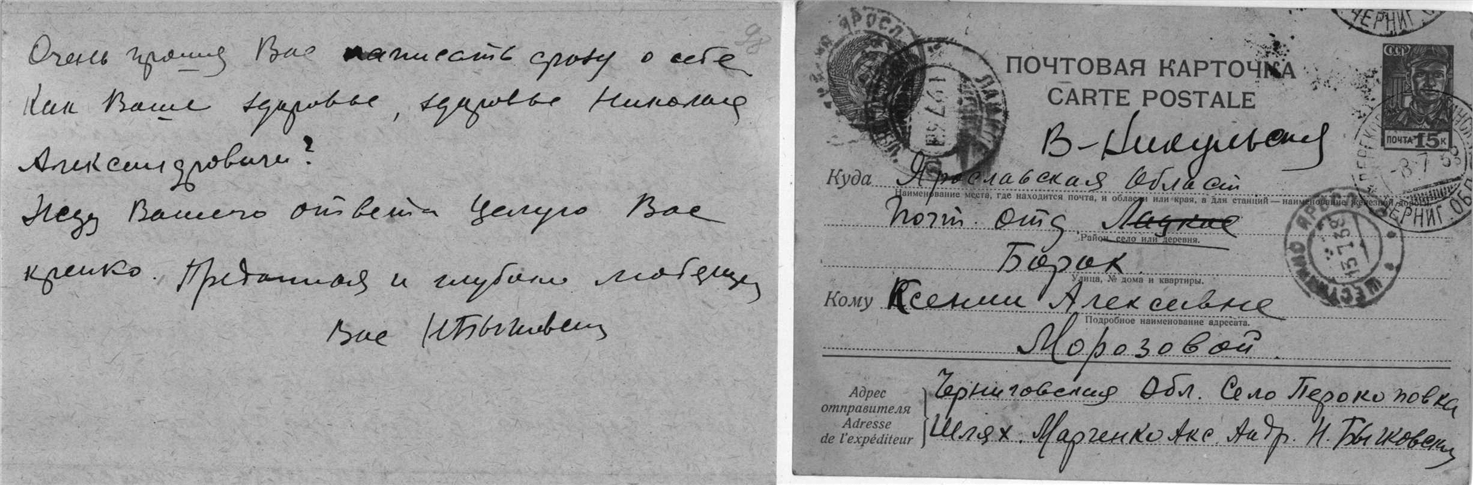 98
Очень прошу Вас написать сразу о себе
Как Ваше здоровье, здоровье Николая
Александровича?
Жду Вашего ответа Целую Вас
крепко. Преданная и глубоко любящая
Вас Н Бычковская
ПОЧТОВАЯ КАРТОЧКА
CARTE POSTALE
СССР
ПОЧТА 15К
В-Никульская
Куда Ярославская Область
Наименование места, где находится почта, и области или края, а для станций — наименование железной дор.
Почт. отд. Лацкое
Район, село или деревня.
Борок
Улица, № дома и квартиры.
Кому Ксении Алексеевне
Подробное наименование адресата.
Морозовой
Адрес отправителя
Adresse de l'expéditeur
Черниговская Обл. Село Перокоповка
Шлях. Марченко Акс. Андр. Н. Бычковская
ЧЕРНИГ. ОБЛ
-8-7 53
ЧЕРНИГ. ОБЛ
ШЕСТИХИНО ЯРОС
15 7 53